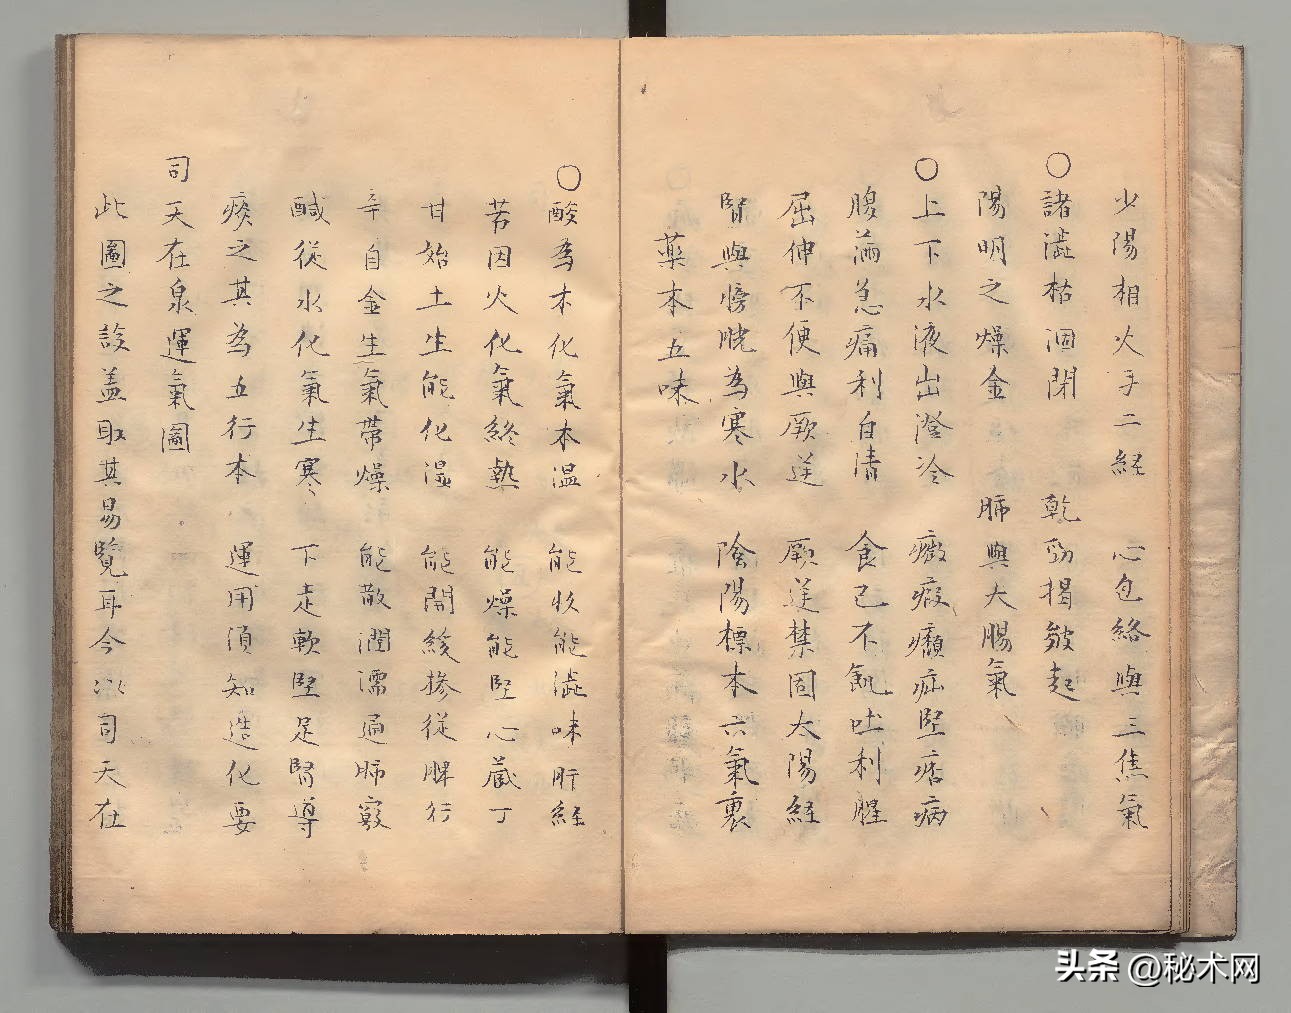 少陽相火手二経　心包絡與三焦氣
〇諸澁枯涸閉　乾勁揭皴起
陽明之燥金　肺與大腸氣
〇上下水液出澄冷　癥瘕㿗疝堅痞病
腹滿急痛利白清　食已不飢吐利腥
屈伸不便與厥逆　厥逆禁固太陽経
腎與膀胱為寒水　陰陽標本六氣裏
藥本五味
〇酸為木化氣本温　能收能澁味肝経
苦因火化氣終熱　能燥能堅心藏丁
甘始土生能化湿　能開緩掺従脾行
辛自金生氣帶燥　能散潤濡通肺竅
鹹従水化氣生寒　下走軟堅足腎導
痰之其為五行本　運用須知造化要
司天在泉運氣圖
此圖之設盖取其易覽耳今以司天在
头条 @秘术网